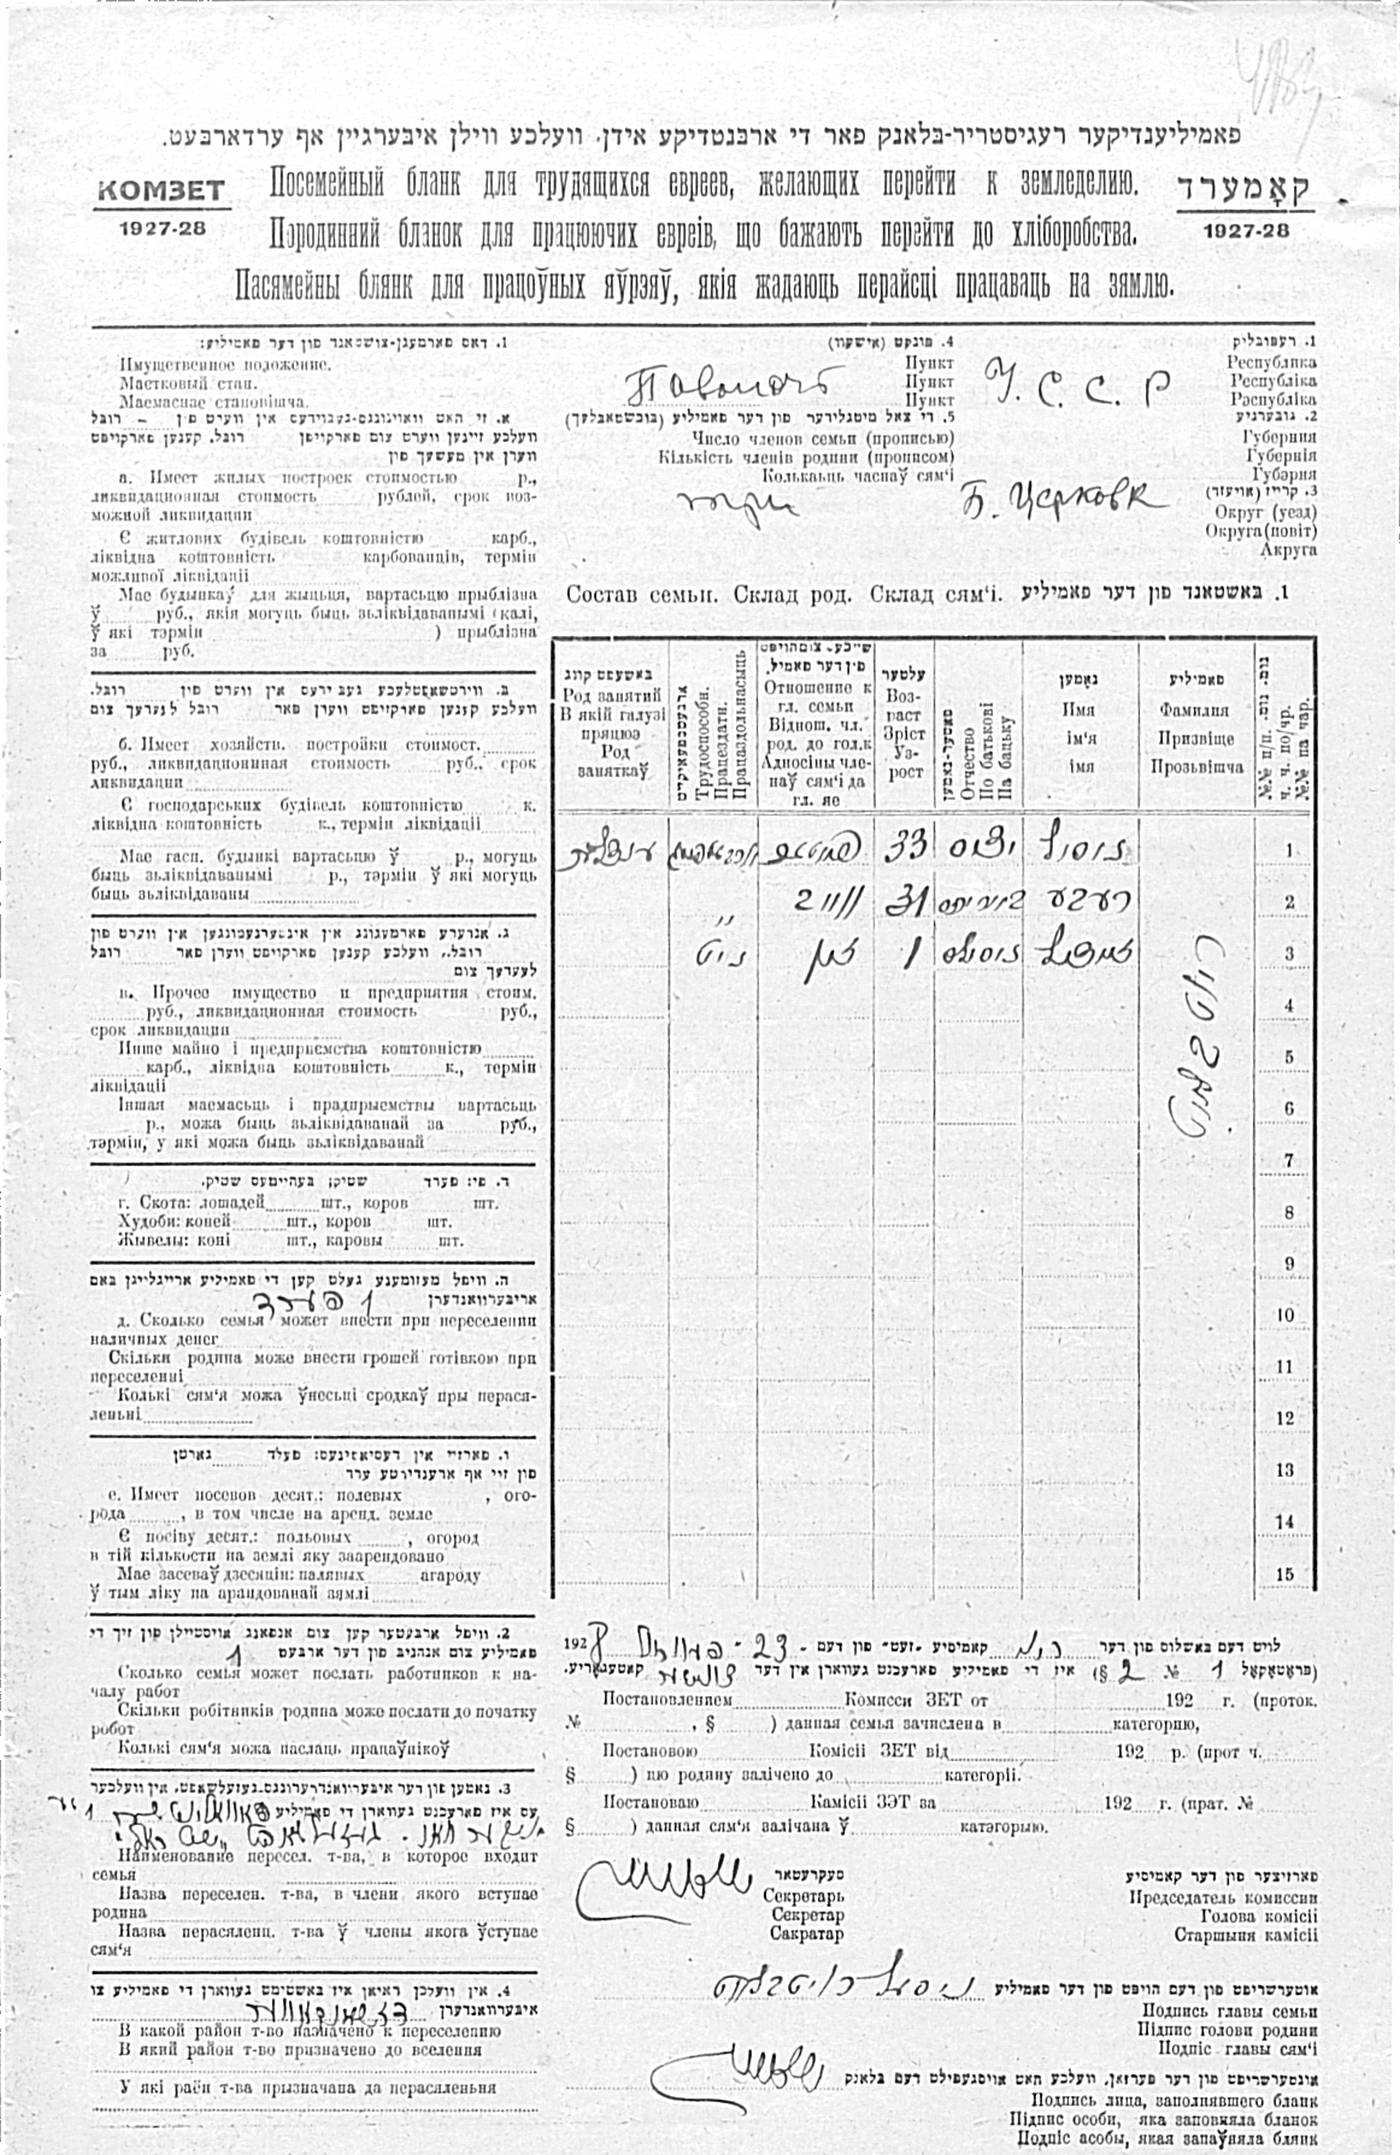 פאמיליענדיקער רעגיסטריר-בלאנק פאר די ארבנטדיקע אידן, וועלכע ווילן איבערגיין אף ערדארבעט.
КОМЗЕТ
1927-28
Посемейный бланк для трудящихся евреев, желающих перейти к земледелию.
Породинний бланок для працюючих евреів, що бажають перейти до хліборобства.
Пасямейны блянк для працоўных яўрэяў, якія жадаюць перайсці працаваць на зямлю.
קאָמערד
1927-28
1. רעפובליק
Республика
Республіка
Рэспубліка
У. С. С. Р
2. גובערניע
Губерния
Губернія
Губэрня
3. קרייז (אויעזד)
Округ (уезд)
Округа(повіт)
Акруга
Б. Церковк
4. פונקט (אישעוו)
Пункт
Пункт
Пункт
Паволочь
5. די צאל מיטגלידער פון דער פאמיליע (בוכשטאבלעך)
Число членов семьи (прописью)
Кількість членів родини (прописом)
Колькаьць часнаў сям'і
1. דאס פארמעגן-צושטאנד פון דער פאמיליע:
Имущественное положение.
Маетковый стан.
Маемаснае становішча.
א. זי האט וואוינונגס-געבוידעס אין ווערט פין – רובל
וועלכע זיינען ווערט צום פארקויפן רובל, קענען פארקויפט
ווערן אין משעך פון
а. Имеет жилых построек стоимостью р.,
ликвидационная стоимость рублей, срок воз-
можной ликвидации
Є житлових будівель коштовністю карб.,
ліквідна коштовність карбованців, термін
можливої ліквідації
Мае будынкаў для жыцьця, вартасьцю прыблізна
ў руб., якія могуць быць зьліквідаванымі (калі,
ў які тэрмін ) прыблізна
за руб.
ב. ווירטשאפטלעכע געביידעס אין ווערט פון רובל.
וועלכע קענען פארקויפט ווערן פאר רובל לענערך צום
б. Имеет хозяйств. постройки стоимост.
руб., ликвидационинная стоимость руб., срок
ликвидации
Є господарських будівель коштовністю к.
ліквідна коштовність к., термін ліквідації
Мае гасп. будынкі вартасьцю ў р., могуць
быць зьліквідаванымі р., тэрмін ў які могуць
быць зьліквідаваны
ג. אנדערע פארמעגונג אין אונטערנעמונגען אין ווערט פון
רובל, וועלכע קענען פארקויפט ווערן פאר רובל
לענערך צום
в. Прочее имущество и предприятия стоим.
руб., ликвидационная стоимость руб.,
срок ликвидации
Инше майно і предприємства коштовністю
карб., ліквідна коштовність к., термін
ліквідації
Іншая маемасьць і прадпрыемствы вартасьць
р., можа быць зьліквідаванай за руб.,
тэрмін, у які можа быць зьліквідаванай
ד. פי: פערד שטיק; בעהיימעס שטיק.
г. Скота: лошадей шт., коров шт.
Худоби: коней шт., коров шт.
Жывелы: коні шт., каровы шт.
ה. וויפל מעזומענע געלט קען די פאמיליע אריינלייגן באם
אריבערוואנדערן 1 פערד
д. Сколько семья может внести при переселении
наличных денег
Скільки родина може внести грошей готівкою при
переселенні
Колькі сям'я можа ўнесьці сродкаў пры перася-
леньні
ו. פארזיי אין דעסיאטינעס: פעלד גארטן
פון זיי אף ארענדירטע ערד
е. Имеет посевов десят.: полевых , ого-
рода , в том числе на аренд. земле
Є посіву десят.: польовых , огород
в тій кількости на землі яку заарендовано
Мае засеваў дзесяцін: палявых агароду
ў тым ліку на арандованай зямлі
2. וויפל ארבעטער קען צום אנפאנג אויסטיילן פון זיך די
פאמיליע צום אנהויב פון דער ארבעט 1
Сколько семья может послать работников к на-
чалу работ
Скільки робітників родина може послати до початку
робот
Колькі сям'я можа паслаць працаўнікоў
3. נאמען פון דער איבערוואנדערונגס-געזעלשאפט, אין וועלכער
עס איז פארעכנט געווארן די פאמיליע
Наименование пересел. т-ва, в которое входит
семья
Назва переселен. т-ва, в члени якого вступае
родина
Назва перасяленц. т-ва ў члены якога ўступае
сям'я
4. אין וועלכן ראיאן איז באשטימט געווארן די פאמיליע צו
איבערוואנדערן
В какой район т-во назначено к переселению
В який район т-во призначено до вселення
У які раён т-ва прызначана да перасяленьня
Состав семьи. Склад род. Склад сям'і. 1. באשטאנד פון דער פאמיליע
№№ п/п. ч. ч. по/чр. №№ па чар.
פאמיליע Фамилия Призвіще Прозьвішча
נאָמען Имя ім'я імя
פאטער-נאמען Отчество По батькові Па бацьку
עלטער Воз-раст Зріст Уз-рост
שייכע- צום הויפט פין דער פאמיל. Отношение к гл. семьи Віднош. чл. род. до гол.к Адносіны чле-наў сям'і да гл. яе
ארבעטספעאיקייט Трудоспособн. Працездатн. Працаздольнасьць
באשעפטיקונג Род занятий В якій галузі працюэ Род заняткаў
1 33
2 רעבע 31 ווייב "
3 1 זון ניט
4
5
6
7
8
9
10
11
12
13
14
15
לויט דעם באשלוס פון דער קאמיסיע „זעט“ פון דעם 23 - 1928
(פראטאקאל № 1 § 2) איז די פאמיליע פארעכנט געווארן אין דער צווייטער קאטעגאריע.
Постановлением Комисси ЗЕТ от 192 г. (проток.
№ , § ) данная семья зачислена в категорию,
Постановою Комісіі ЗЕТ від 192 р. (прот ч.
§ ) цю родину залічено до категоріі.
Постановаю Камісіі ЗЭТ за 192 г. (прат. №
§ ) данная сям'я залічана ў катэгорыю.
סעקרעטאר
Секретарь
Секретар
Сакратар
פארזיצער פון דער קאמיסיע
Председатель комиссии
Голова комісії
Старшыня камісіі
אונטערשריפט פון דעם הויפט פון דער פאמיליע
Подпись главы семьи
Підпис голови родини
Подпіс главы сям'і
אונטערשריפט פון דער פערזאן, וועלכע האט אויסגעפילט דעם בלאנק
Подпись лица, заполнявшего бланк
Підпис особи, яка заповняла бланок
Подпіс асобы, якая запаўняла блянк